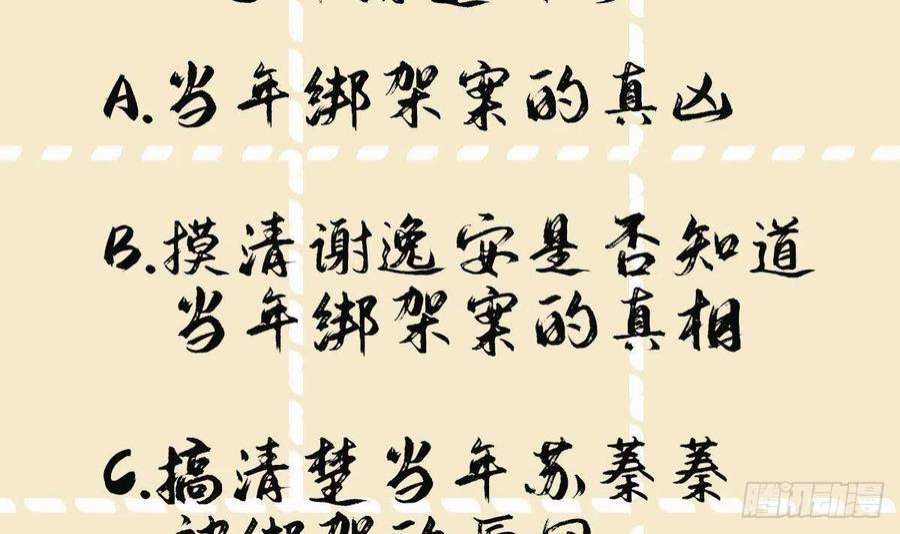 A.当年绑架案的真凶
B.摸清谢逸安是否知道
当年绑架案的真相
C.搞清楚当年苏蓁蓁
被绑架的原因
腾讯动漫